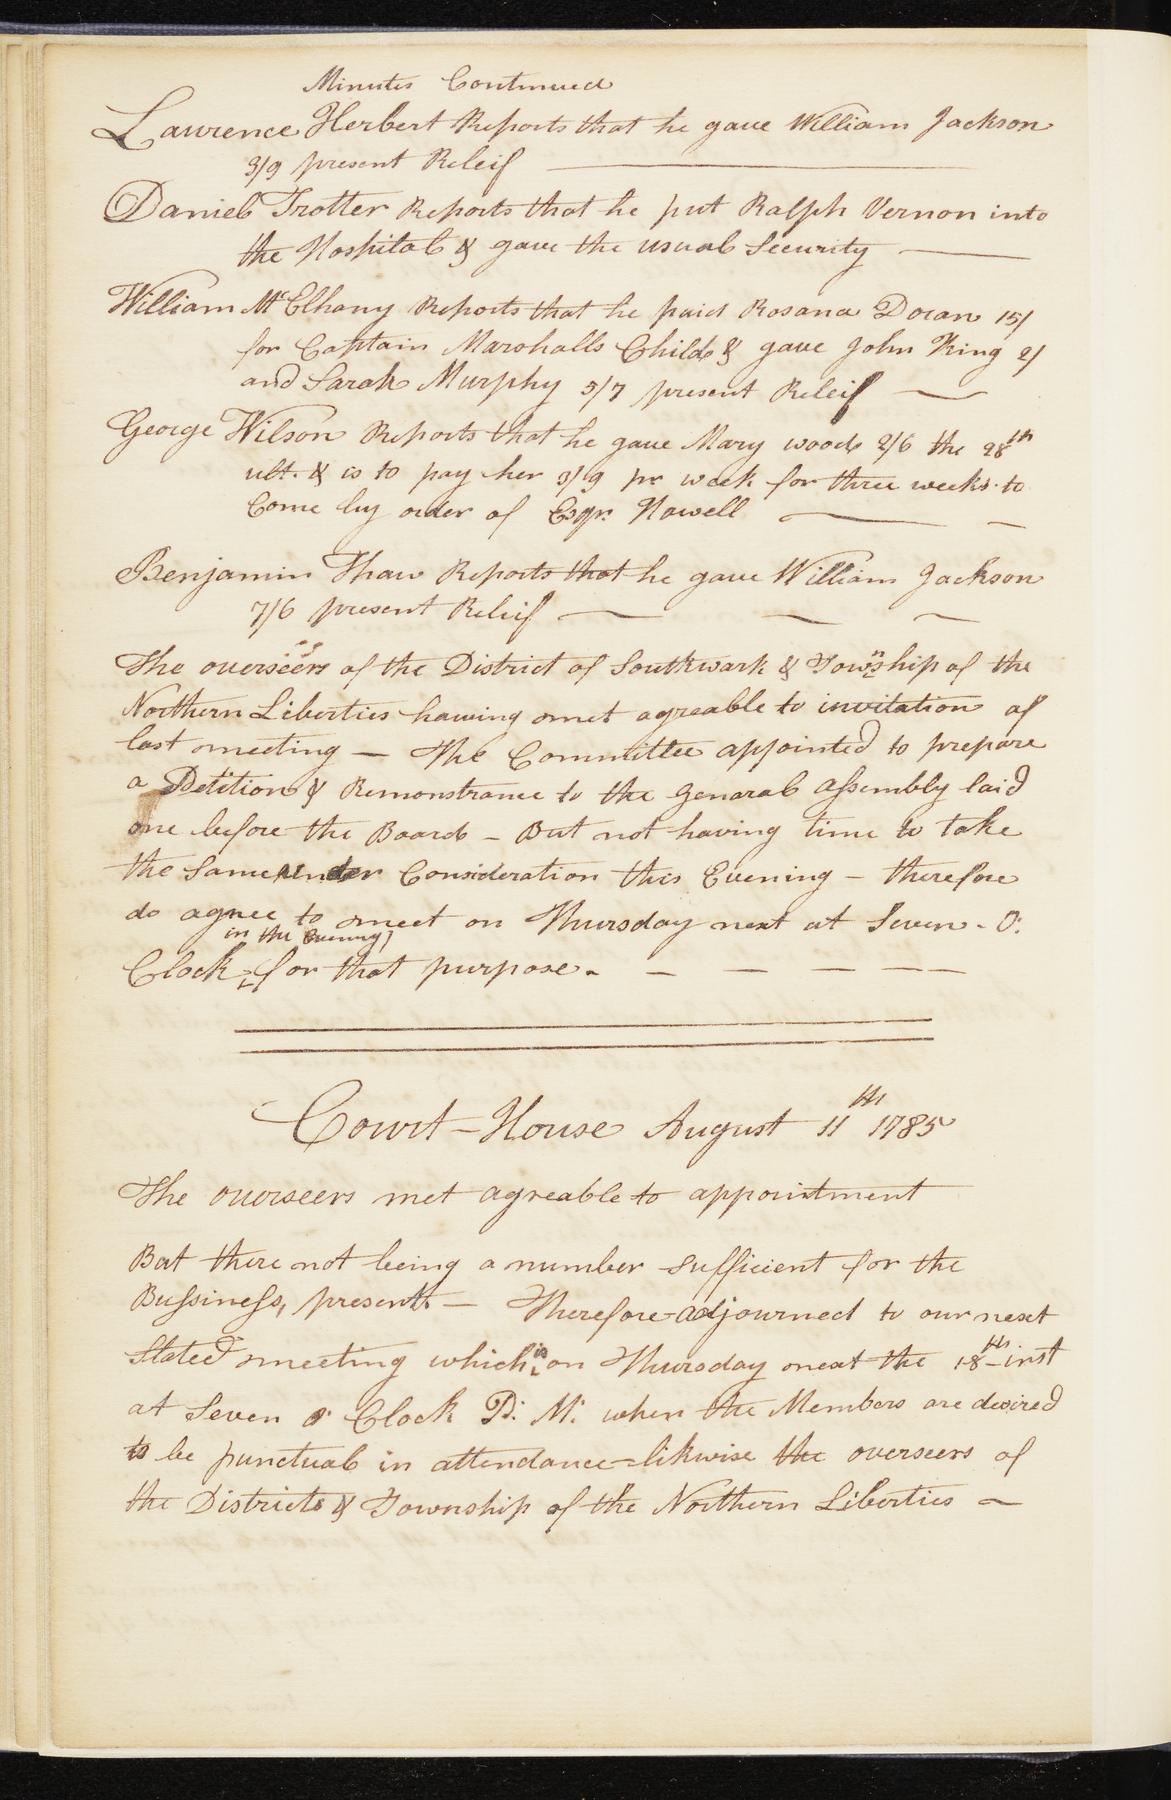 Minutes Continued
Lawrence Herbert Reports that he gave William Jackson
3/9 present Releif
Daniel Trotter Reports that he put Ralph Vernon into
the Hospital & gave the usual Security
William McElhany Reports that he paid Rosana Doran 15/
for Captain Marshalls Child & gave John King 2/
and Sarah Murphy 5/7 present Releif
George Wilson Reports that he gave Mary woods 2/6 the 28th
ult. & is to pay her 3/9 pr week for three weeks to
Come by order of Esqr. Nowell
Benjamin Thaw Reports that he gave William Jackson
7/6 present Releif
The overseers of the District of Southwark & Township of the
Northern Liberties having met agreable to invitation of
last meeting — The Committee appointed to prepare
a Petition & Remonstrance to the General assembly laid
one before the Board – But not having time to take
the Same under Consideration this Evening – therefore
do agree to meet on Thursday next at Seven - O:
in the Evening
Clock for that purpose. — — — — —
Court-House August 11th 1785
The overseers met agreable to appointment
But there not being a number sufficient for the
Bussiness, present. — Therefore adjourned to our next
Stated meeting which is on Thursday next the 18th inst
at Seven o Clock P: M: when the Members are desired
to be punctual in attendance = likwise the overseers of
the Districts & Township of the Northern Liberties —